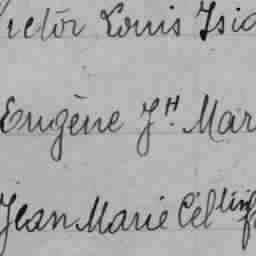 Victor Louis Isid
Eugène J.H. Mar
Jean Marie Cél